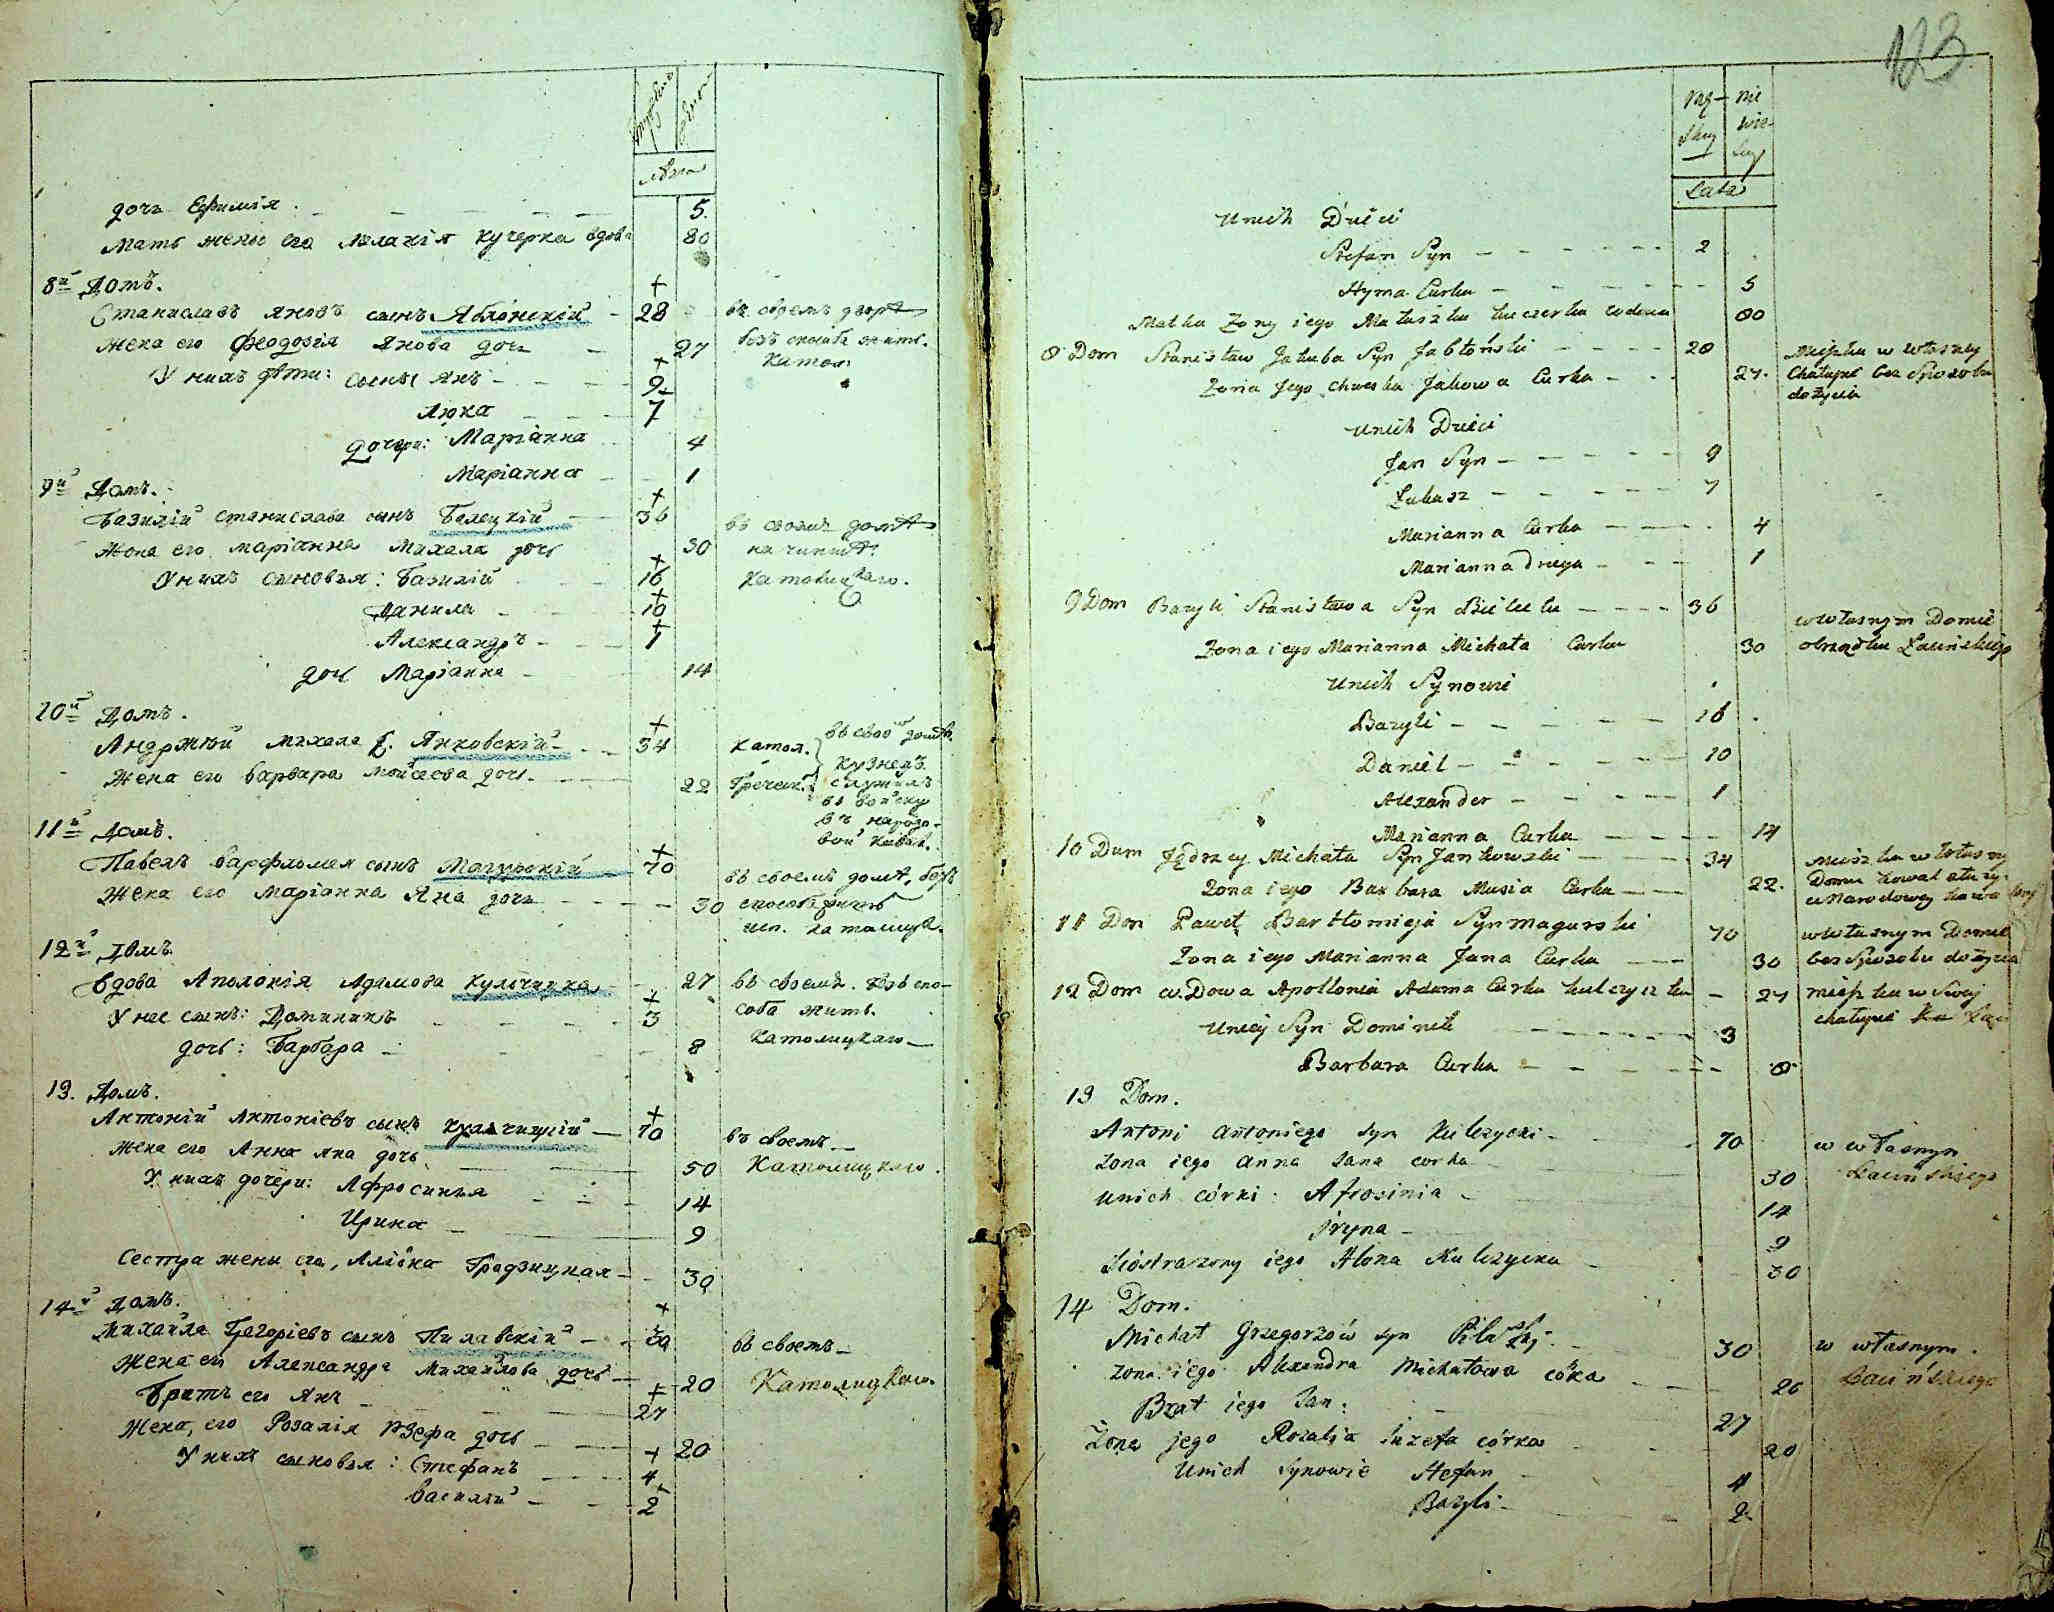 Лета
дочь Ефимія 5.
Мать жены его Мелагія Кучерка вдова 80
8й Домъ. +
Станиславъ Яновъ сынъ Яблонскій 28 въ своемъ дворѣ
жена его Феодозія Янова дочь 27 безъ способа жить.
У нихъ дѣти: сыны Янъ 9 Катол.
Лука 7
дочери: Маріанна 4
Маріанна 1
9й Домъ. +
Базилій Станислава сынъ Белецкій 36 въ своемъ домѣ
Жена его Маріанна Михала дочь 30 на чиншѣ.
У нихъ сыновья: Базилій 16 Католицкаго.
Данила 10
Александръ 1
дочь Маріанна 14
10й Домъ. +
Андржей Михала с. Янковскій 34 Катол. въ своемъ домѣ
кузнецъ
Жена его Варвара Мойсеева дочь. 22 Греческ. служилъ
въ войску
въ народо-
вой кавал.
11й Домъ. +
Павелъ Варфломея сынъ Магурскій 70 въ своемъ домѣ, безъ
Жена его Маріанна Яна дочь 30 способа жить
исп. католицк.
12й Домъ
Вдова Аполонія Адамова Кульчицка 27 въ своемъ. безъ спо-
У нее сынъ: Доминикъ 3 соба жить.
дочь: Барбара 8 Католицкаго
13. Домъ. +
Антоній Антоніевъ сынъ Кульчицкій 70 въ своемъ
Жена его Анна Яна дочь 50 Католицкаго.
У нихъ дочери: Афросинья 14
Ирина 9
Сестра жены его, Алёна Градзицкая 30
14й Домъ. +
Михайла Грегоріевъ сынъ Пилавскій 30 въ своемъ
Жена его Александра Михайлова дочь 20 Католицкаго.
Братъ его Янъ 27
Жена, его Розалія Юзефа дочь 20
У нихъ сыновья: Стефанъ 4
Василій 2
123
Mę- nie
skiey wie-
skiey
Lata
U nich Dzieci
Stefan Syn 2
Hyma Curka 5
Matka Zony iego Matuszka Kuczerka wdowa 80
8 Dom Stanisław Jakuba Syn Jabłoński 28 Mieszka w własney
Zona Jego Chweska Jakowa Curka 27. Chałupie bez sposobu
do życia
U nich Dzieci
Jan Syn 9
Łukasz 7
Marianna Curka 4
Marianna druga 1
9 Dom Bazyli Stanisława Syn Bielecki 36 w własnym Domie
Zona iego Marianna Michała Curka 30 obrządku Łacińskiego
U nich Synowie
Bazyli 16
Daniel 10
Alexander 1
Marianna Curka 14
10 Dum Jędrzey Michała Syn Jankowski 34 Mieszka w własny
Zona iego Barbara Musia Curka 22. Domu kował służy
w Narodowey kawalery
11 Dom Paweł Bartłomieja Syn Magurski 70 w własnym Domie
Zona iego Marianna Jana Curka 30 bez sposobu do życia
12 Dom w. Dowa Apollonia Adama Curka Kulczyczka 27 Mieszka w Swej
Uniey Syn Dominik 3 chałupie
Barbara Curka 8
13 Dom.
Antoni Antoniego syn Kulczycki 70 w własnym
zona iego Anna Jana corka 30 Łacińskiego
u nich córki: Afrosinia 14
Jryna 9
Siostra zony iego Alona Kulczycka 30
14 Dom.
Michał Grzegorzów syn Pilaski 30 w własnym.
zona iego Alexandra Michałowa córka 20 Łacińskiego
Brat iego Jan. 27
Żona jego Rozalia Juzefa córka 20
U nich Synowie Stefan 4
Bazyli 2